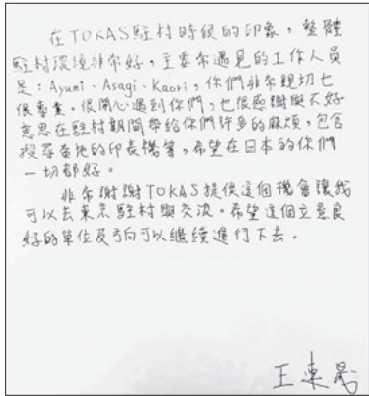 在TOKAS駐村時候的印象，整體
駐村環境非常好，主要常遇見的工作人員
是：Ayumi、Asagi、Kaori，你們非常親切也
很專業。很開心遇到你們，也很感謝與不好
意思在駐村期間帶給你們許多的麻煩，包含
搜尋當地的印表機等，希望在日本的你們
一切都好。
非常謝謝TOKAS提供這個機會讓我
可以去東京駐村與交流。希望這個立意良
好的單位及方向可以繼續進行下去。
王東